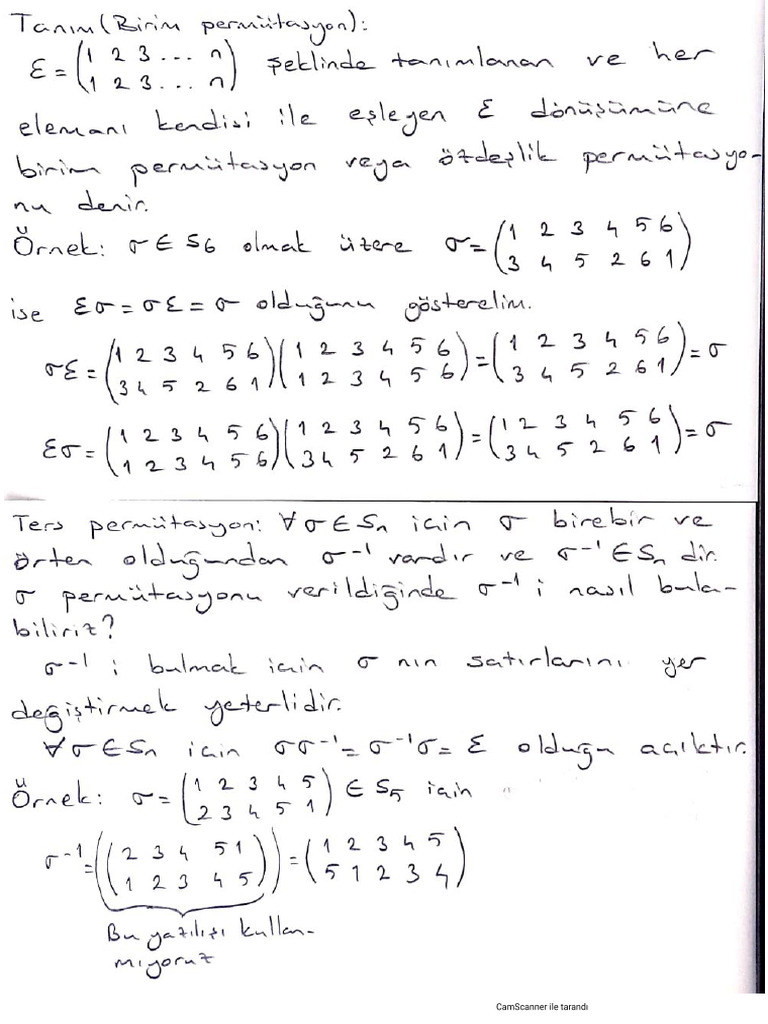 Tanım (Birim permütasyon):
ε = (1 2 3 ... n / 1 2 3 ... n) şeklinde tanımlanan ve her
elemanı kendisi ile eşleyen ε dönüşümüne
birim permütasyon veya özdeşlik permütasyo-
nu denir.
Örnek: σ ∈ S₆ olmak üzere σ = (1 2 3 4 5 6 / 3 4 5 2 6 1)
ise εσ = σε = σ olduğunu gösterelim.
σε = (1 2 3 4 5 6 / 3 4 5 2 6 1)(1 2 3 4 5 6 / 1 2 3 4 5 6) = (1 2 3 4 5 6 / 3 4 5 2 6 1) = σ
εσ = (1 2 3 4 5 6 / 1 2 3 4 5 6)(1 2 3 4 5 6 / 3 4 5 2 6 1) = (1 2 3 4 5 6 / 3 4 5 2 6 1) = σ
Ters permütasyon: ∀σ ∈ Sₙ için σ birebir ve
örten olduğundan σ⁻¹ vardır ve σ⁻¹ ∈ Sₙ dir.
σ permütasyonu verildiğinde σ⁻¹ i nasıl bula-
biliriz?
σ⁻¹ i bulmak için σ nın satırlarını yer
değiştirmek yeterlidir.
∀σ ∈ Sₙ için σσ⁻¹ = σ⁻¹σ = ε olduğu açıktır.
Örnek: σ = (1 2 3 4 5 / 2 3 4 5 1) ∈ S₅ için
σ⁻¹ = ((2 3 4 5 1 / 1 2 3 4 5)) = (1 2 3 4 5 / 5 1 2 3 4)
Bu yazılışı kullan-
mıyoruz
CamScanner ile tarandı